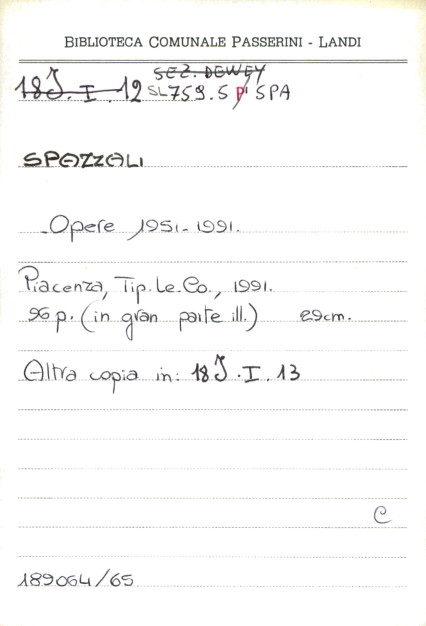 BIBLIOTECA COMUNALE PASSERINI - LANDI
SEZ. DEWEY
18J. I. 12 SL 759.5 pi SPA
SPAZZALI
Opere 1951-1991.
Piacenza, Tip.Le.Co., 1991.
96 p. (in gran parte ill.) 29cm.
Altra copia in: 18J.I.13
C
189064/65